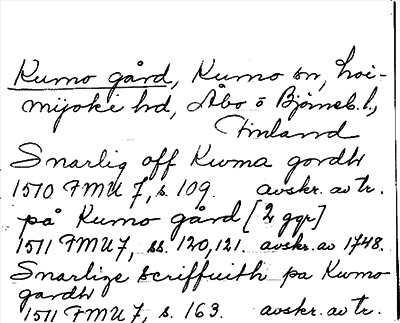 Kumo gård, Kumo sn, Loi-
mijoki hd, Åbo o Björneb.l.,
Finland
Snarlig off Kwma gordh
1510 FMU 7, s. 109. avskr. av tr.
på Kumo gård [2 ggr]
1511 FMU 7, ss. 120, 121. avskr. av 1748.
Snarlige scriffuith pa Kumo
gardh
1511 FMU 7, s. 163. avskr. av tr.